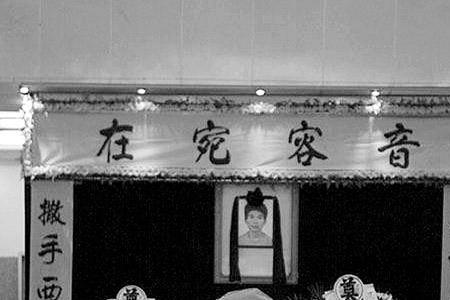 音容宛在
撒手西
奠
奠